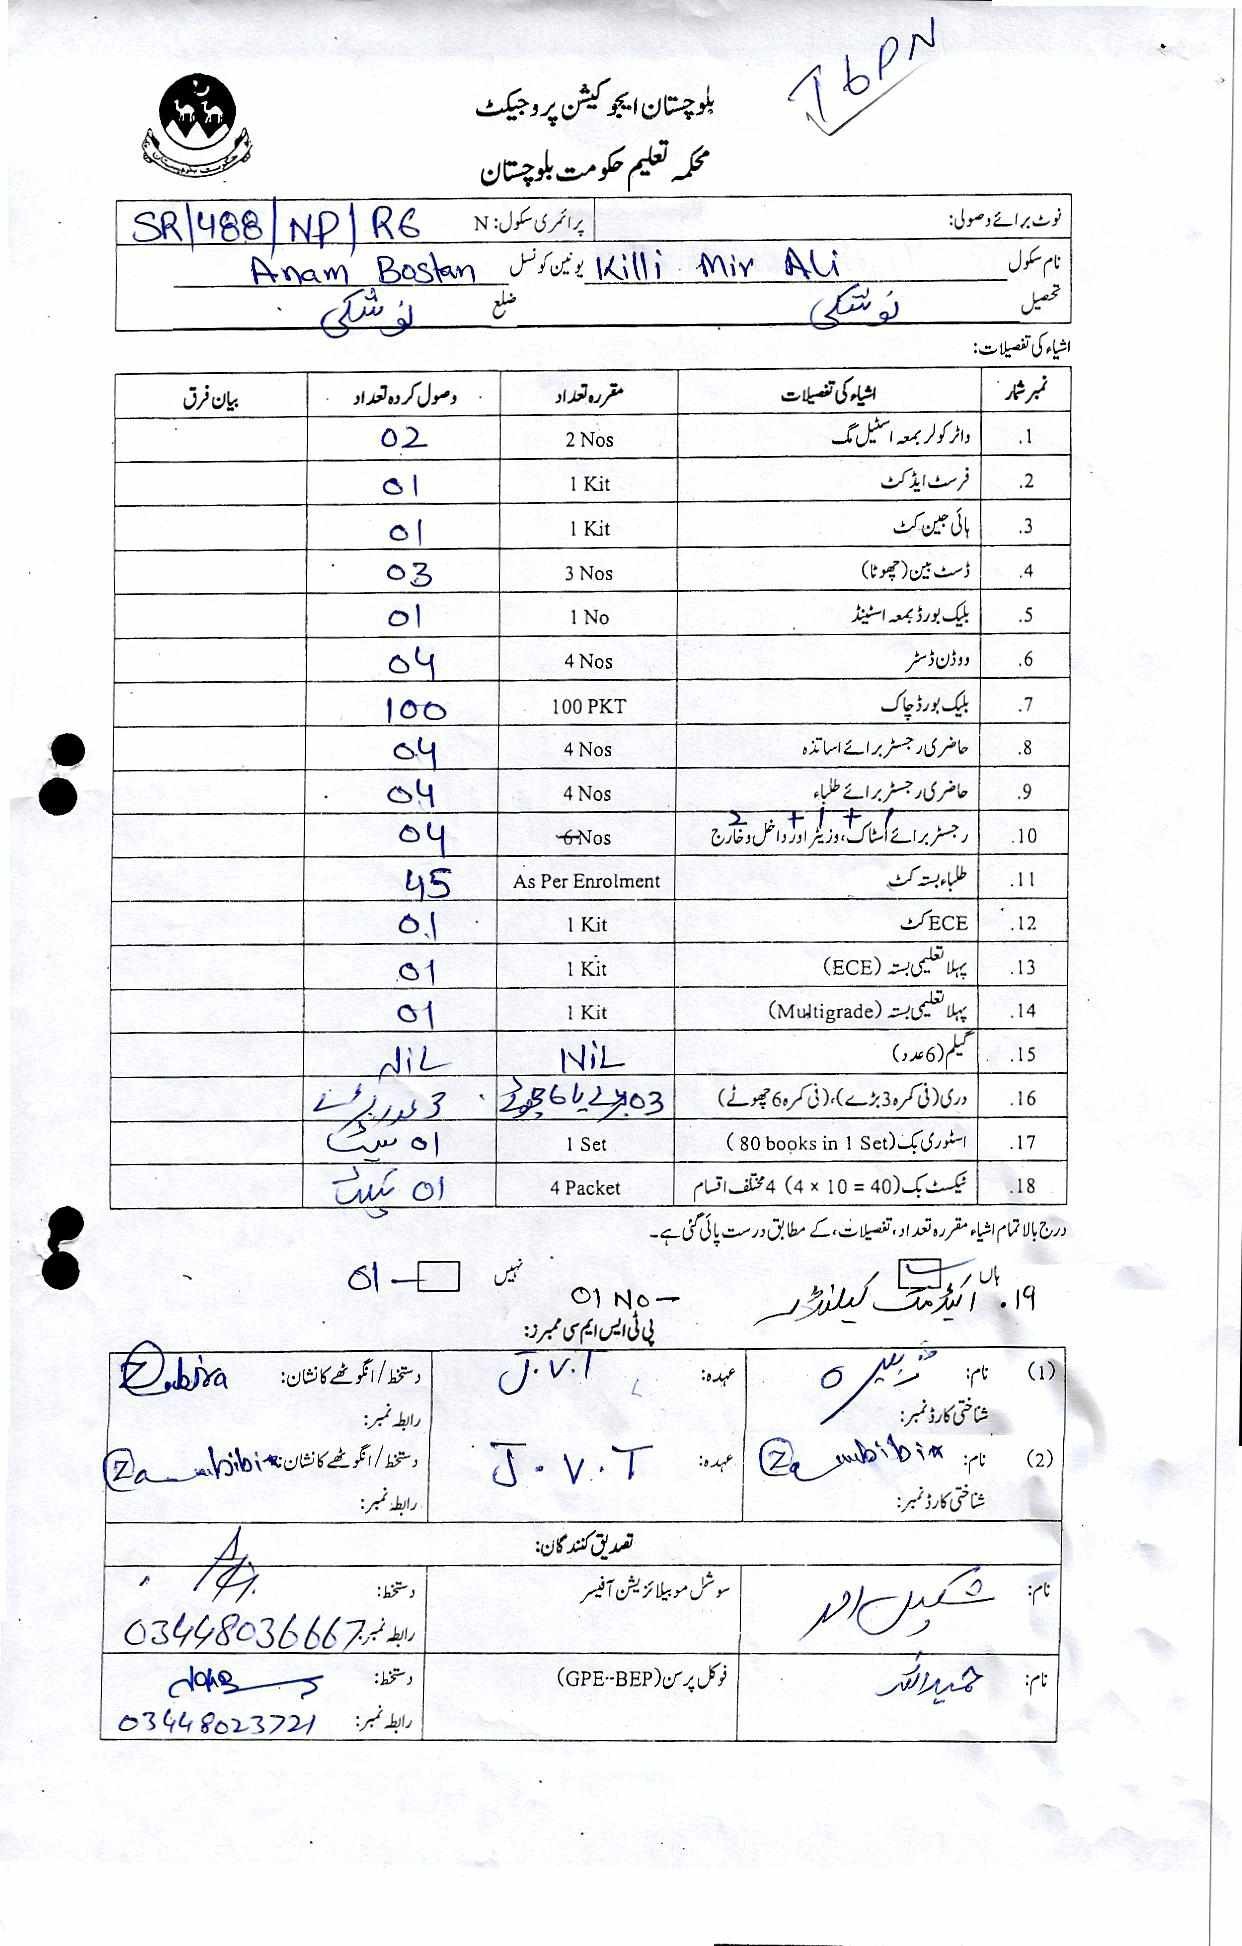 T6PN
بلوچستان ایجوکیشن پروجیکٹ
محکمہ تعلیم حکومت بلوچستان
نوٹ برائے وصولی: پرائمری سکول: N SR/488/NP/R6
نام سکول Killi Mir Ali یونین کونسل Anam Bostan
تحصیل نوشکی ضلع نوشکی
اشیاء کی تفصیلات:
نمبر شمار اشیاء کی تفصیلات مقررہ تعداد وصول کردہ تعداد بیان فرق
1. واٹر کولر بمعہ اسٹیل مگ 2 Nos 02
2. فرسٹ ایڈ کٹ 1 Kit 01
3. ہائی جین کٹ 1 Kit 01
4. ڈسٹ بین (چھوٹا) 3 Nos 03
5. بلیک بورڈ بمعہ اسٹینڈ 1 No 01
6. ووڈن ڈسٹر 4 Nos 04
7. بلیک بورڈ چاک 100 PKT 100
8. حاضری رجسٹر برائے اساتذہ 4 Nos 04
9. حاضری رجسٹر برائے طلباء 4 Nos 04
2 + 1 + 1
10. رجسٹر برائے اسٹاک، وزیٹر اور داخل و خارج 6 Nos 04
11. طلباء بستہ کٹ As Per Enrolment 45
12. ECE کٹ 1 Kit 01
13. پہلا تعلیمی بستہ (ECE) 1 Kit 01
14. پہلا تعلیمی بستہ (Multigrade) 1 Kit 01
15. گیلم (6 عدد) NiL NiL
16. دری (فی کمرہ 3 بڑے)، (فی کمرہ 6 چھوٹے) 03 بڑے یا 6 چھوٹے 3 عدد بڑے
17. اسٹوری بک (80 books in 1 Set) 1 Set 01 سیٹ
18. ٹیکسٹ بک (4 × 10 = 40) 4 مختلف اقسام 4 Packet 01
درج بالا تمام اشیاء مقررہ تعداد، تفصیلات، کے مطابق درست پائی گئی ہے۔
ہاں نہیں 01
۱۹. اکیڈمک کیلنڈر 01 No
پی ٹی ایس ایم سی ممبرز:
(1) نام: زبیرہ عہدہ: J.V.T دستخط / انگوٹھے کا نشان: Zabira
شناختی کارڈ نمبر: رابطہ نمبر:
(2) نام: عہدہ: J.V.T دستخط / انگوٹھے کا نشان:
شناختی کارڈ نمبر: رابطہ نمبر:
تصدیق کنندگان:
نام: شکیل احمد سوشل موبیلائزیشن آفیسر دستخط:
رابطہ نمبر: 03448036667
نام: حمیداللہ فوکل پرسن (GPE--BEP) دستخط:
رابطہ نمبر: 03448023721